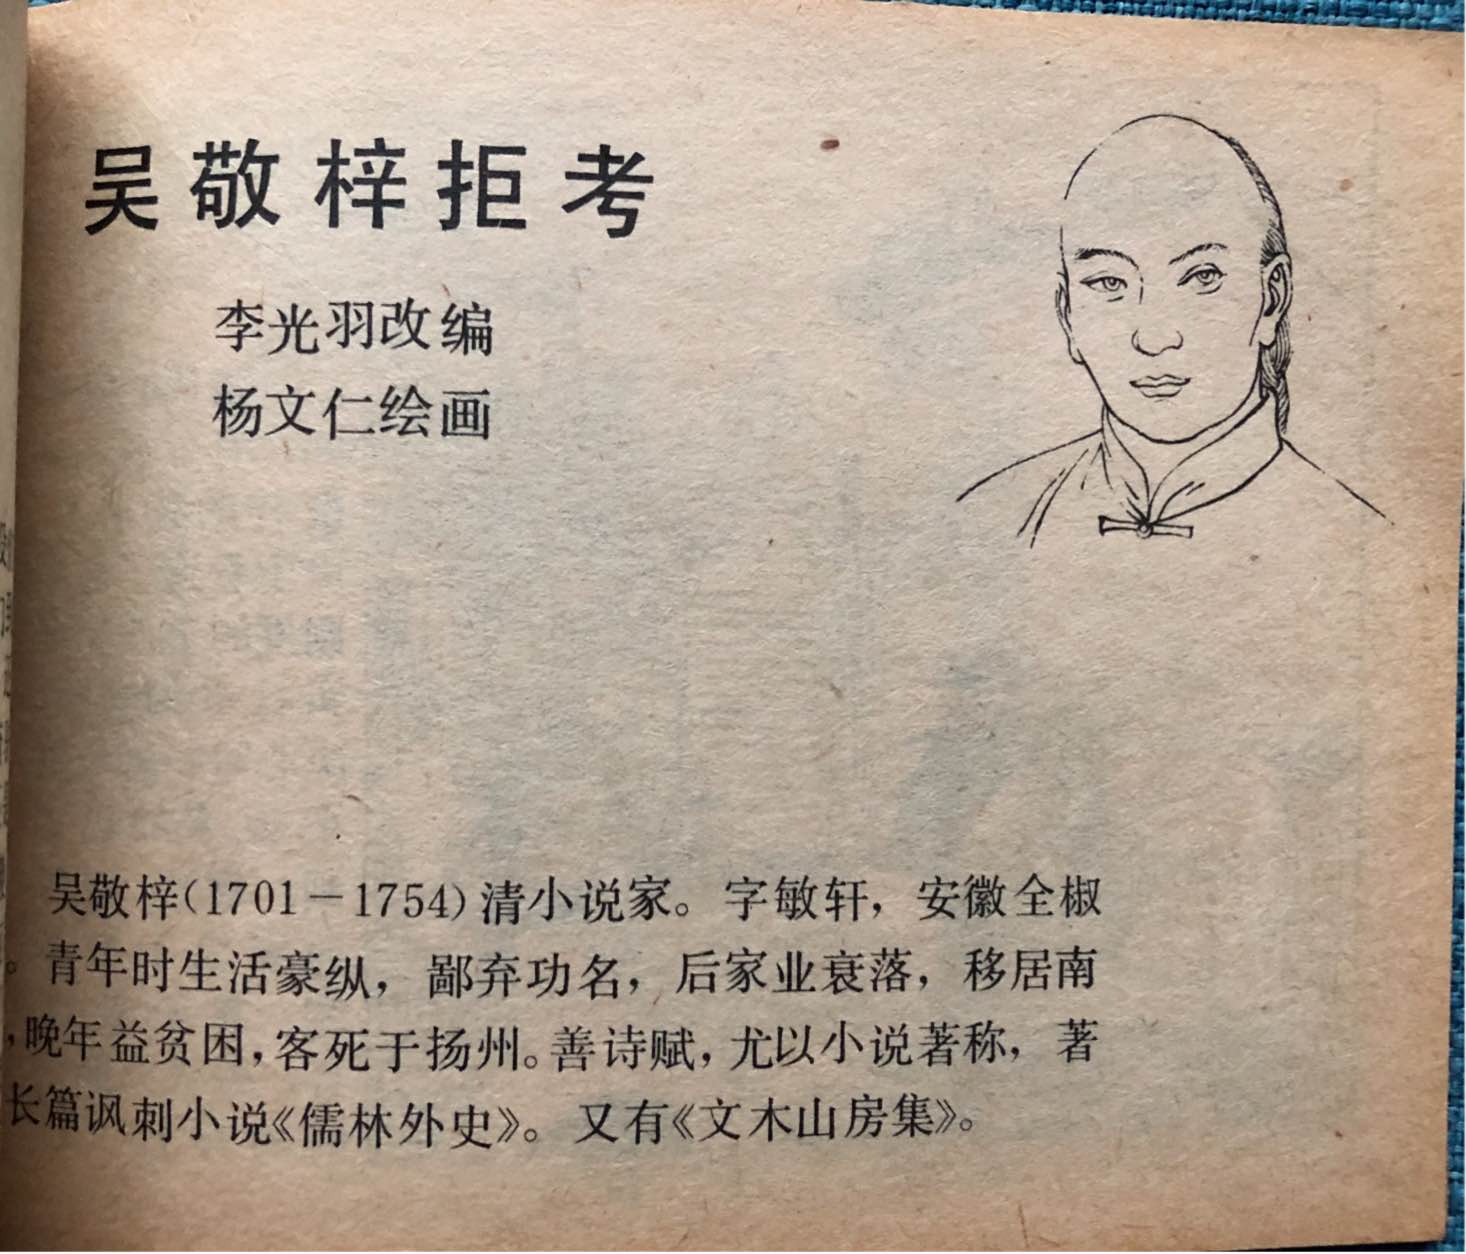 吴敬梓拒考
李光羽改编
杨文仁绘画
吴敬梓(1701－1754)清小说家。字敏轩，安徽全椒
。青年时生活豪纵，鄙弃功名，后家业衰落，移居南
，晚年益贫困，客死于扬州。善诗赋，尤以小说著称，著
长篇讽刺小说《儒林外史》。又有《文木山房集》。